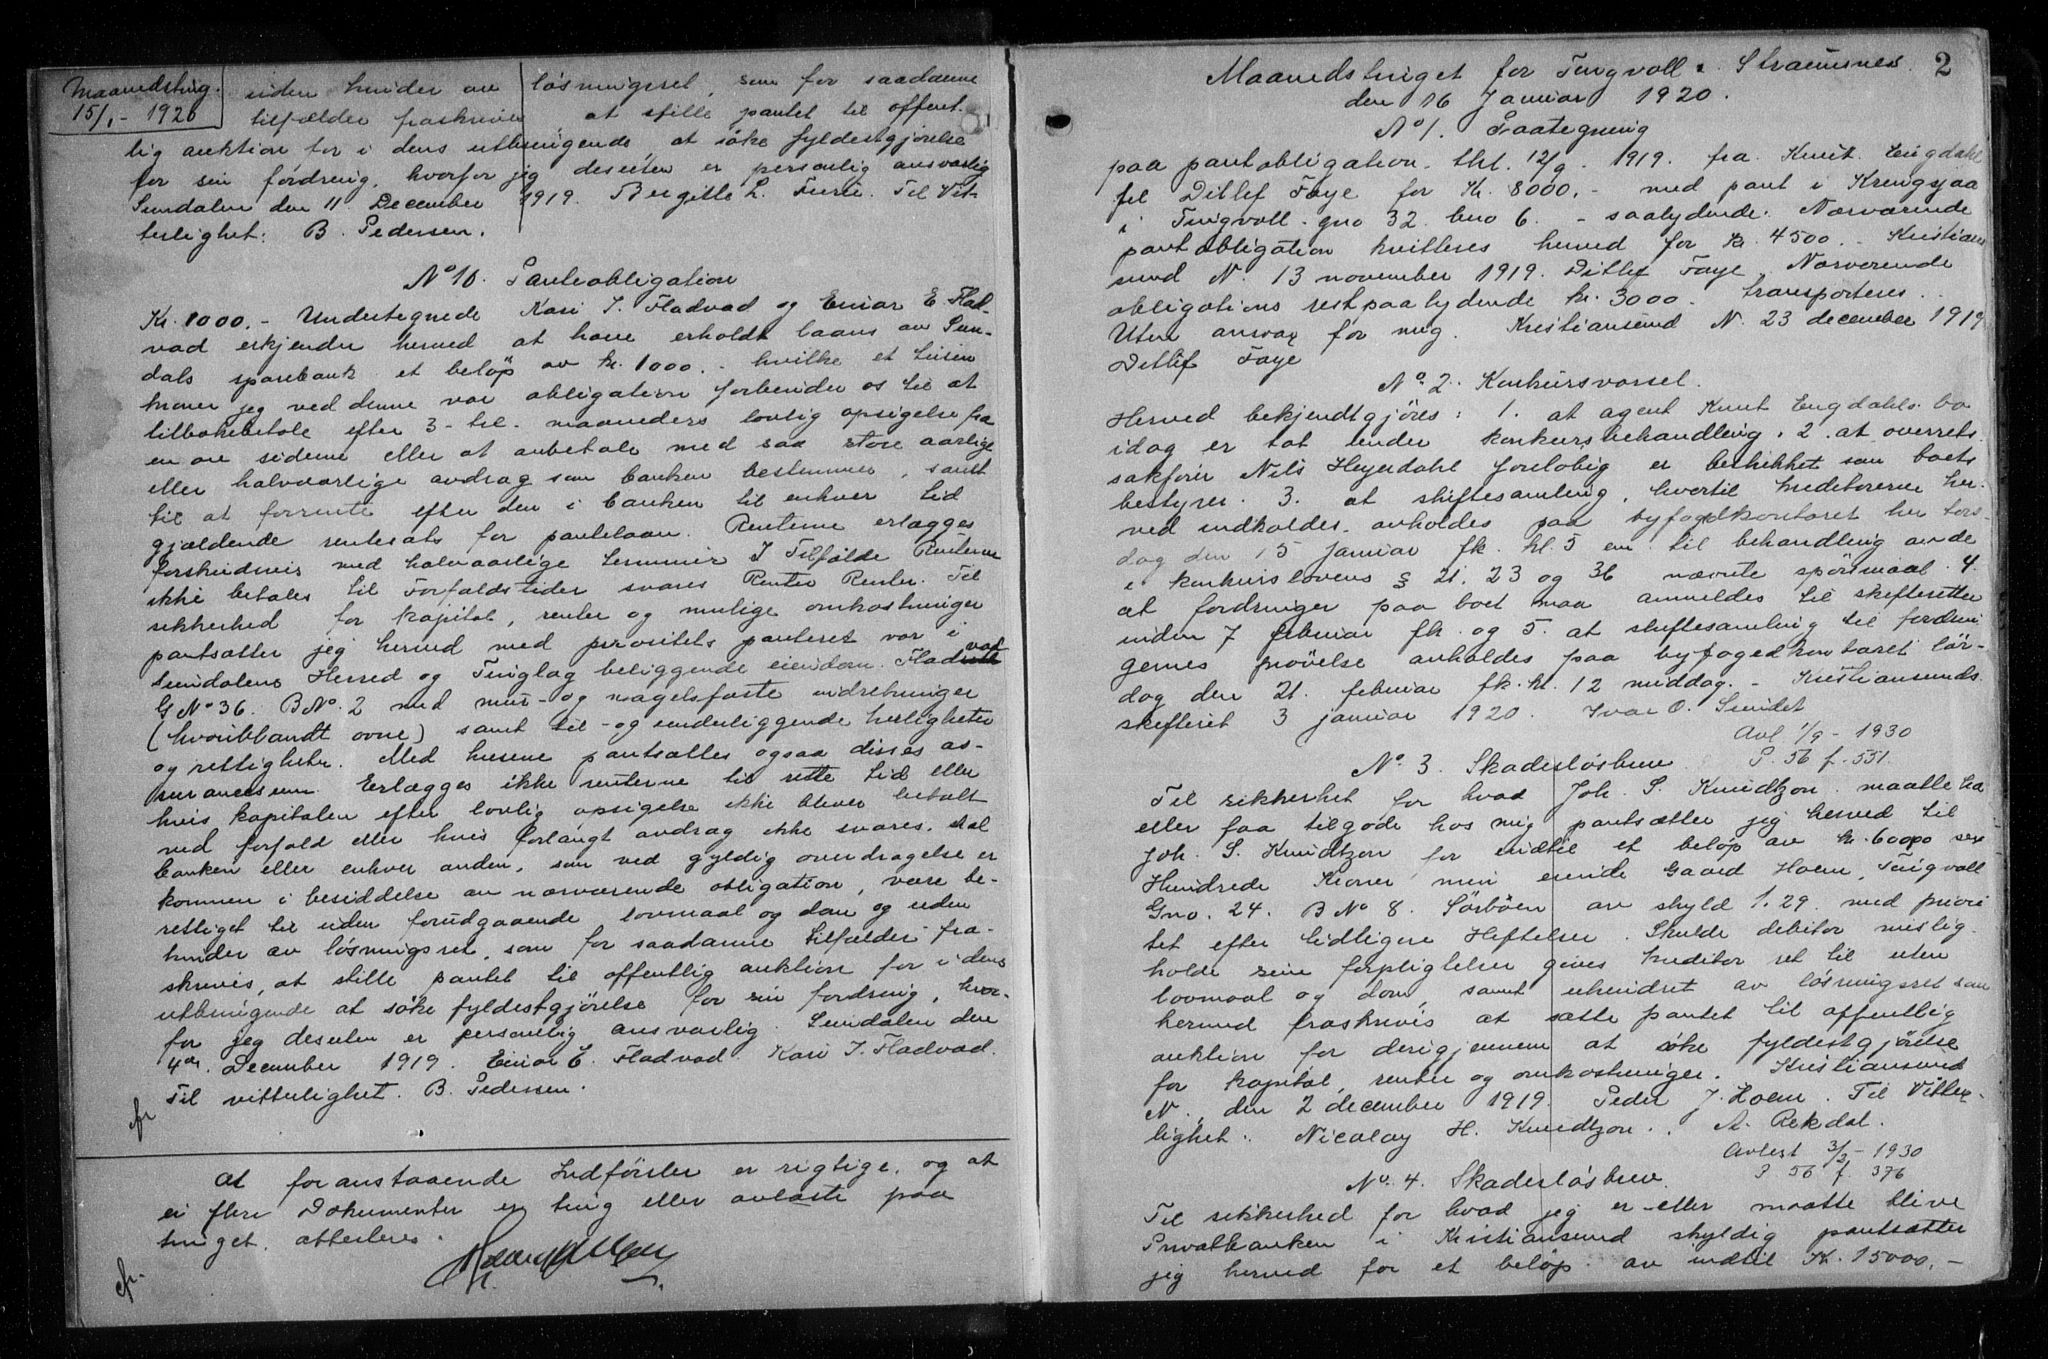 Maanedsting.
15/1 - 1920
uden hinder av løsningsret, som for saadanne
tilfælder fraskrives at stille pantet til offent-
lig auktion for i dens utbringende at søke fyldestgjørelse
for sin fordring, hvorfor jeg desuten er personlig ansvarlig
Sundalen den 11 December 1919. Birgitte L. Furu. Til Vit-
terlighet: B. Pedersen.
No 10. Panteobligation
Kr. 1000.- Undertegnede Kari J. Fladvad og Einar E. Flad-
vad erkjender herved at have erholdt laans av Sun-
dals sparebank et beløp av kr. 1000.- hvilke et tusin
kroner jeg ved denne vor obligation forbinder os til at
tilbakebetale efter 3-tre-maaneders lovlig opsigelse fra
en av siderne eller at avbetale med saa store aarlige
eller halvaarlige avdrag som banken bestemmer, samt
til at forrente efter den i banken til enhver tid
gjældende rentesats for pantelaan. Renterne erlægges
forskudsvis med halvaarlige terminer I Tilfælde Renterne
ikke betales til Forfaldstider svares Renters Renter. Til
sikkerhed for kapital, renter og mulige omkostninger
pantsætter jeg herved med prioritets panteret vor i
Sundalens Herred og Tinglag beliggende eiendom Fladvad
G No 36. B No. 2 med mur- og nagelfaste indretninger
(hvoriblandt ovne) samt til- og underliggende herligheter
og rettigheter. Med husene pantsættes ogsaa disses as-
surancesum. Erlægges ikke renterne til rette tid eller
hvis kapitalen efter lovlig opsigelse ikke bliver betalt
ved forfald eller hvis forlangt avdrag ikke svares, skal
banken eller enhver anden, som ved gyldig overdragelse er
kommen i besiddelse av nærværende obligation, være be-
rettiget til uden forudgaaende lovmaal og dom og uden
hinder av løsningsret, som for saadanne tilfælder fra-
skrives, at stille pantet til offentlig auktion for i dens
utbringende at søke fyldestgjørelse for sin fordring, hvor-
for jeg desuten er personlig ansvarlig. Sundalen den
4de December 1919. Einar E. Fladvad. Kari J. Fladvad.
Til vitterlighet. B. Pedersen.
At foranstaaende Indførsler er rigtige, og at
ei flere Dokumenter er ting eller avlæste paa
tinget, attesteres.
2
Maanedstinget for Tingvoll & Straumsnes
den 16 Januar 1920.
No 1. Paategning
paa pantobligation thl. 12/9 - 1919. fra Knut Engdahl
til Ditlef Faye for Kr. 8000.- med pant i Krengsjaa
i Tingvoll gno 32 bno 6. - saalydende: Nærværende
pantobligation kvitteres herved for kr. 4500.- Kristian
sund N. 13 november 1919. Ditlef Faye. Nærværende
obligations restpaalydende kr. 3000. transporteres.
Uten ansvar for mig. Kristiansund N. 23 december 1919
Ditlef Faye
No. 2. Konkursvarsel.
Herved bekjendtgjøres: 1. at agent Knut Engdahls bo
idag er tat under konkursbehandling. 2. at overrets
sakfører Nils Heyerdahl foreløbig er beskikket som boets
bestyrer. 3. at skiftesamling, hvortil kreditorerne her-
ved indkaldes avholdes paa byfogdkontoret her tors-
dag den 15 januar fk. kl. 5 em. til behandling av de
i konkurslovens § 21. 23 og 36 nævnte spørsmaal. 4.
at fordringer paa boet maa anmeldes til skifteretten
inden 7 februar fk. og 5. at skiftesamling til fordrin
gernes prøvelse avholdes paa byfogedkontoret lør-
dag den 21. februar fk. kl. 12 middag. - Kristiansunds
skifteret 3 januar 1920. Ivar O. Sundet
Avl 1/9 - 1930
P. 56 f. 551.
No. 3. Skadesløsbrev
Til sikkerhet for hvad Joh. S. Knudtzon maatte ha
eller faa tilgode hos mig pantsætter jeg herved til
Joh. S. Knudtzon for indtil et beløp av kr. 600,00 sex
Hundrede Kroner min eiende Gaard Hoem, Tingvoll
Gno. 24. B No 8. Sørbøen av skyld 1.29 med priori
tet efter tidligere Heftelser. Skulde debitor mislig-
holde sine forpligtelser gives kreditor ret til uten
lovmaal og dom, samt uhindret av løsningsret som
herved fraskrives at sætte pantet til offentlig
auktion for derigjennem at søke fyldestgjørelse
for kapital, renter og omkostninger. Kristiansund
N. den 2 december 1919. Peder J. Hoem. Til Vitter-
lighet: Nicolay H. Knudtzon. A. Rekdal.
Avlest 3/3 - 1930
P. 56 f. 376
No. 4. Skadesløsbrev.
Til sikkerhed for hvad jeg er eller maatte blive
Privatbanken i Kristiansund skyldig pantsætter
jeg herved for et beløp av indtil Kr. 15000.-